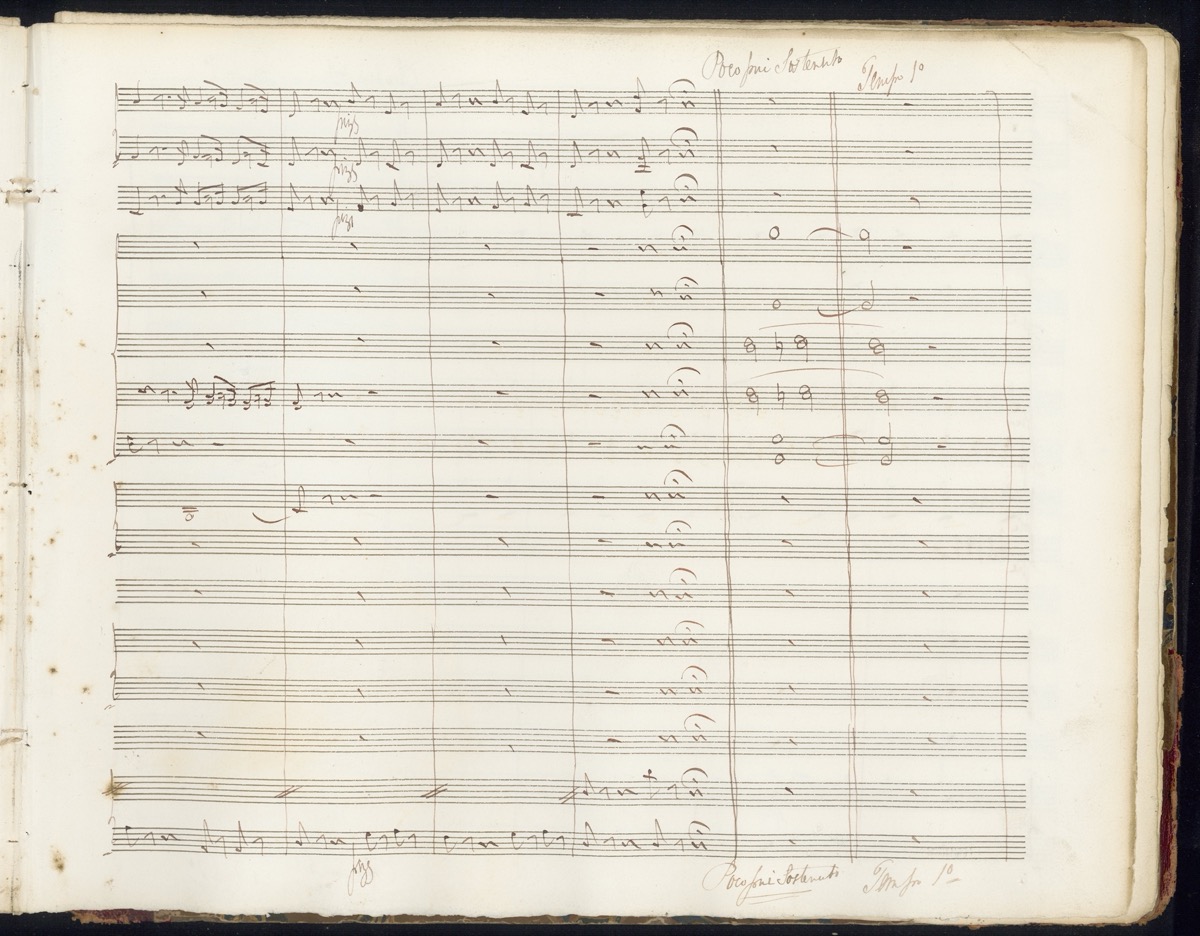 Poco più Sostenuto
Tempo 1º
pizz
pizz
pizz
pizz
Poco più Sostenuto
Tempo 1º